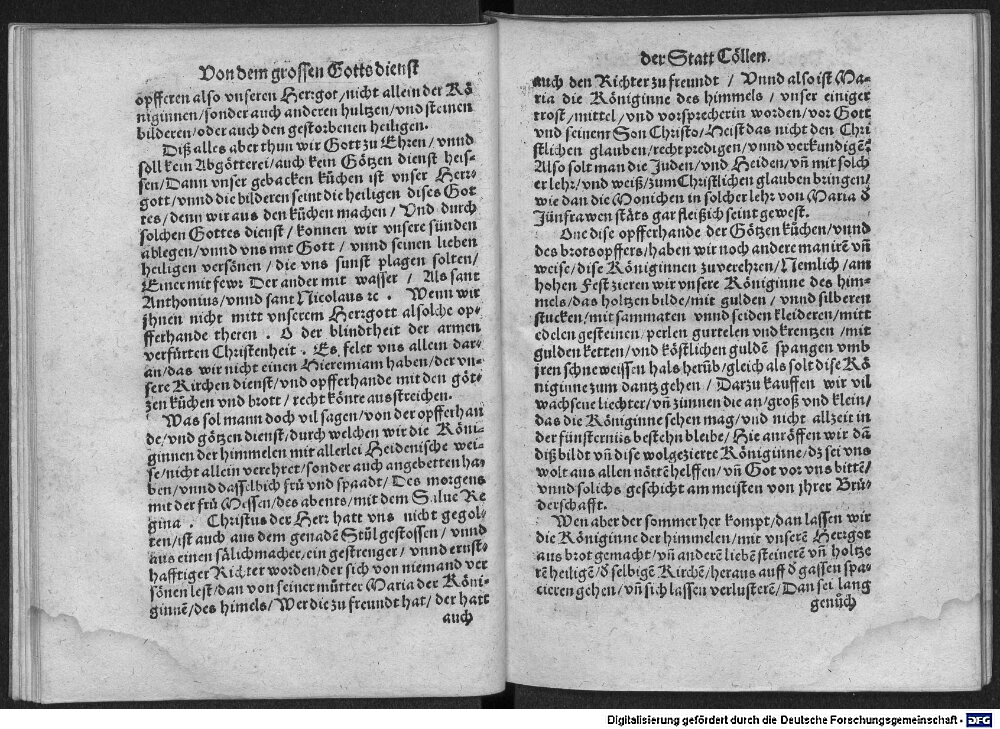 Von dem grossen Gottsdienst
öpfferen also vnseren Herrgot/nicht allein der Kö
niginnen/sonder auch anderen hultzen/vnd steinen
bilderen/oder auch den gestorbenen heiligen.
Diß alles aber thun wir Gott zu Ehren/vnnd
soll kein Abgötterei/auch kein Götzen dienst heis-
sen/Dann vnser gebacken kůchen ist vnser Herr-
gott/vnnd die bilderen seint die heiligen dises Got
tes/denn wir aus den kůchen machen/Vnd durch
solchen Gottes dienst/konnen wir vnsere sünden
ablegen/vnnd vns mit Gott/vnnd seinen lieben
heiligen versönen/die vns sunst plagen solten/
Einer mit fewr Der ander mit wasser/Als sant
Anthonius/vnnd sant Nicolaus ꝛc. Wenn wir
jhnen nicht mitt vnserem Herrgott alsolche op-
fferhande theren. O der blindtheit der armen
verfürten Christenheit. Es felet vns allein dar-
an/das wir nicht einen Hieremiam haben/der vn-
sere Kirchen dienst/vnd opfferhande mit den göt-
zen kůchen vnd brott/recht könte austreichen.
Was sol mann doch vil sagen/von der opfferhan
de/vnd götzen dienst/durch welchen wir die Köni-
ginnen der himmelen mit allerlei Heidenische wei-
se/nicht allein verehret/sonder auch angebetten ha-
ben/vnnd dasselbich frů vnd spaadt/Des morgens
mit der frů Messen/des abents/mit dem Salue Re
gina. Christus der Herr hatt vns nicht gegol-
ten/ist auch aus dem genadē Stůl gestossen/vnnd
aus einen sälichmacher/ein gestrenger/vnnd ernst-
hafftiger Richter worden/der sich von niemand ver
sönen lest/dan von seiner můtter Maria der Köni-
ginnē/des himels/Wer die zu freundt hat/der hatt
auch
der Statt Cöllen.
auch den Richter zu freundt/Vnnd also ist Ma-
ria die Königinne des himmels/vnser einiger
trost/mittel/vnd vorsprecherin worden/vor Gott
vnd seinem Son Christo/Heist das nicht den Chri
stlichen glauben/recht predigen/vnnd verkundigē?
Also solt man die Juden/vnd Heiden/vñ mit solch
er lehr/vnd weiß/zum Christlichen glauben bringen/
wie dan die Monichen in solcher lehr von Maria d
Jünfrawen stäts gar fleißich seint gewest.
One dise opfferhande der Götzen kůchen/vnnd
des brotsopffers/haben wir noch andere manirē vñ
weise/dise Königinnen zu verehren/Nemlich/am
hohen Fest zieren wir vnsere Königinne des him-
mels/das holtzen bilde/mit gulden/vnnd silberen
stucken/mit sammaten vnnd seiden kleideren/mitt
edelen gesteinen/perlen gurtelen vnd krentzen/mit
gulden ketten/vnd köstlichen guldē spangen vmb
jren schneweissen hals herüb/gleich als solt dise Kö
niginne zum dantz gehen/Darzu kauffen wir vil
wachsene liechter/vñ zünnen die an/groß vnd klein/
das die Königinne sehen mag/vnd nicht allzeit in
der fünsternüs bestehn bleibe/Hie anröffen wir dā
diß bildt vñ dise wolgezierte Königinne/dz sei vns
wolt aus allen nöttē helffen/vñ Got vor vns bittē/
vnnd solichs geschicht am meisten von jhrer Brů-
derschafft.
Wen aber der sommer her kompt/dan lassen wir
die Königinne der himmelen/mit vnserē Herrgot
aus brot gemacht/vñ anderē liebē steinerē vñ holtze
rē heiligē/d selbigē Kirchē/heraus auff d gassen spa-
cieren gehen/vñ sich lassen verlusterē/Dan sei lang
genůch
Digitalisierung gefördert durch die Deutsche Forschungsgemeinschaft - DFG